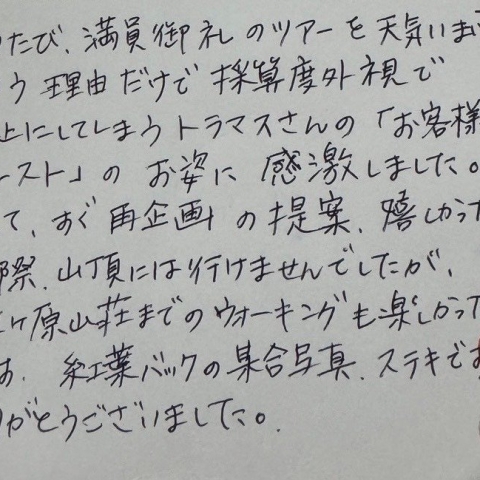 たび、満員御礼のツアーを天気いま
う理由だけで採算度外視で
止にしてしまうトラマスさんの「お客様
ースト」のお姿に感激しました。
て、すぐ再企画の提案、嬉しかった
際、山頂には行けませんでしたが、
ヶ原山荘までのウォーキングも楽しかった
は、紅葉バックの集合写真、ステキです
がとうございました。